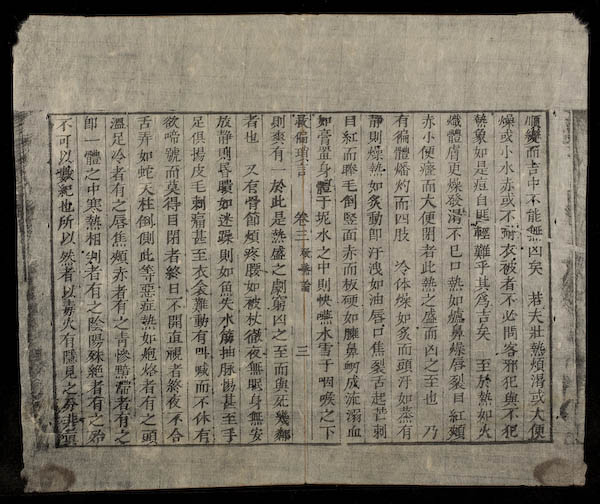 順變而吉中不能無凶矣　若夫壯熱煩渴或大便
燥或小水赤或不耐衣被者不必問客邪犯與不犯
熱象如是痘自匪輕難乎其爲吉矣　至於熱如火
熾體膚更燥發渴不已口熱如爐鼻燥唇裂目紅頰
赤小便澁而大便閉者此熱之盛而凶之至也　乃
有徧體燔灼而四肢　冷体燥如炙而頭汗如蒸有
靜則燥熱如炙動卽汗洩如油唇口焦裂舌起芒刺
目紅而
毛倒竪面赤而板硬如臁鼻衂成流溺血
如膏置身體于坭水之中則快嚥水雪于咽喉之下
則爽有一於此是熱盛之劇窮凶之至而與死幾鄰
者也　又有骨節煩疼腰如被杖徹夜無眠身無安
放靜則昏聵如迷躁則如魚失水觔抽脉惕甚至手
足俱揚皮毛刺痛甚至衣衾難動有叫喊而不休有
欲啼號而莫得目閉者終日不開直視者終夜不合
舌弄如蛇天柱倒側此等惡症熱如炮烙者有之頭
溫足冷者有之唇焦頰赤者有之靑慘黯滯者有之
卽一體之中寒熱相判者有之陰陽殊絶者有之
不可以
紀也所以然者以毒火有隱見之分
救偏瑣言　卷三
論　三